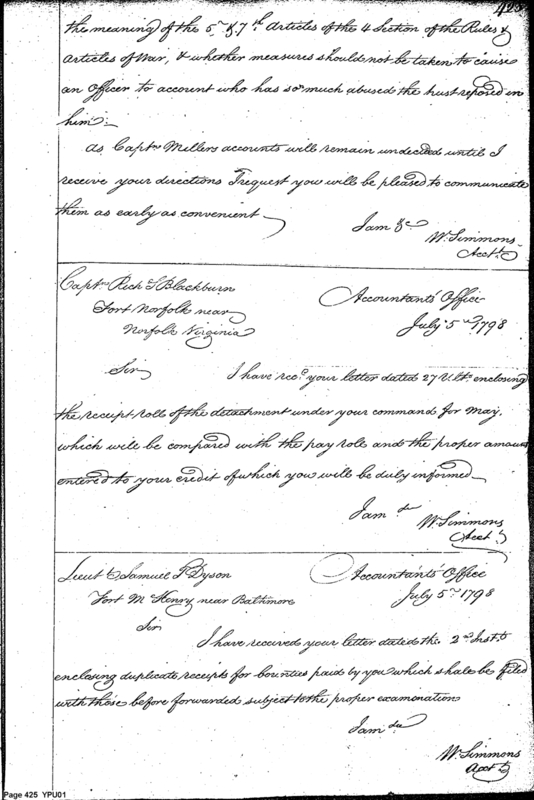 425
the meaning of the 5th & 7th Articles of the 4 Section of the Rules &
Articles of War, & whether measures should not be taken to cause
an Officer to account who has so much abused the trust reposed in
him.
As Captn Millers accounts will remain undecided until I
receive your directions I request you will be pleased to communicate
them as early as convenient
I am &c
W. Simmons
Acctt
Captn Rich S Blackburn
Fort Norfolk near
Norfolk Virginia
Accountants Office
July 5th 1798
Sir
I have recd your letter dated 27 Ulto enclosing
the receipt roll of the detachment under your command for May,
which will be compared with the pay role and the proper amount
entered to your credit of which you will be duly informed
I am &c
W. Simmons
Acctt
Lieut Samuel T Dyson
Fort McHenry near Baltimore
Accountants Office
July 5th 1798
Sir
I have received your letter dated the 2nd Instt
enclosing duplicate receipts for bounties paid by you which shale be filed
with those before forwarded subject to the proper examination
I am &c
W. Simmons
Acctt
Page 425 YPU01